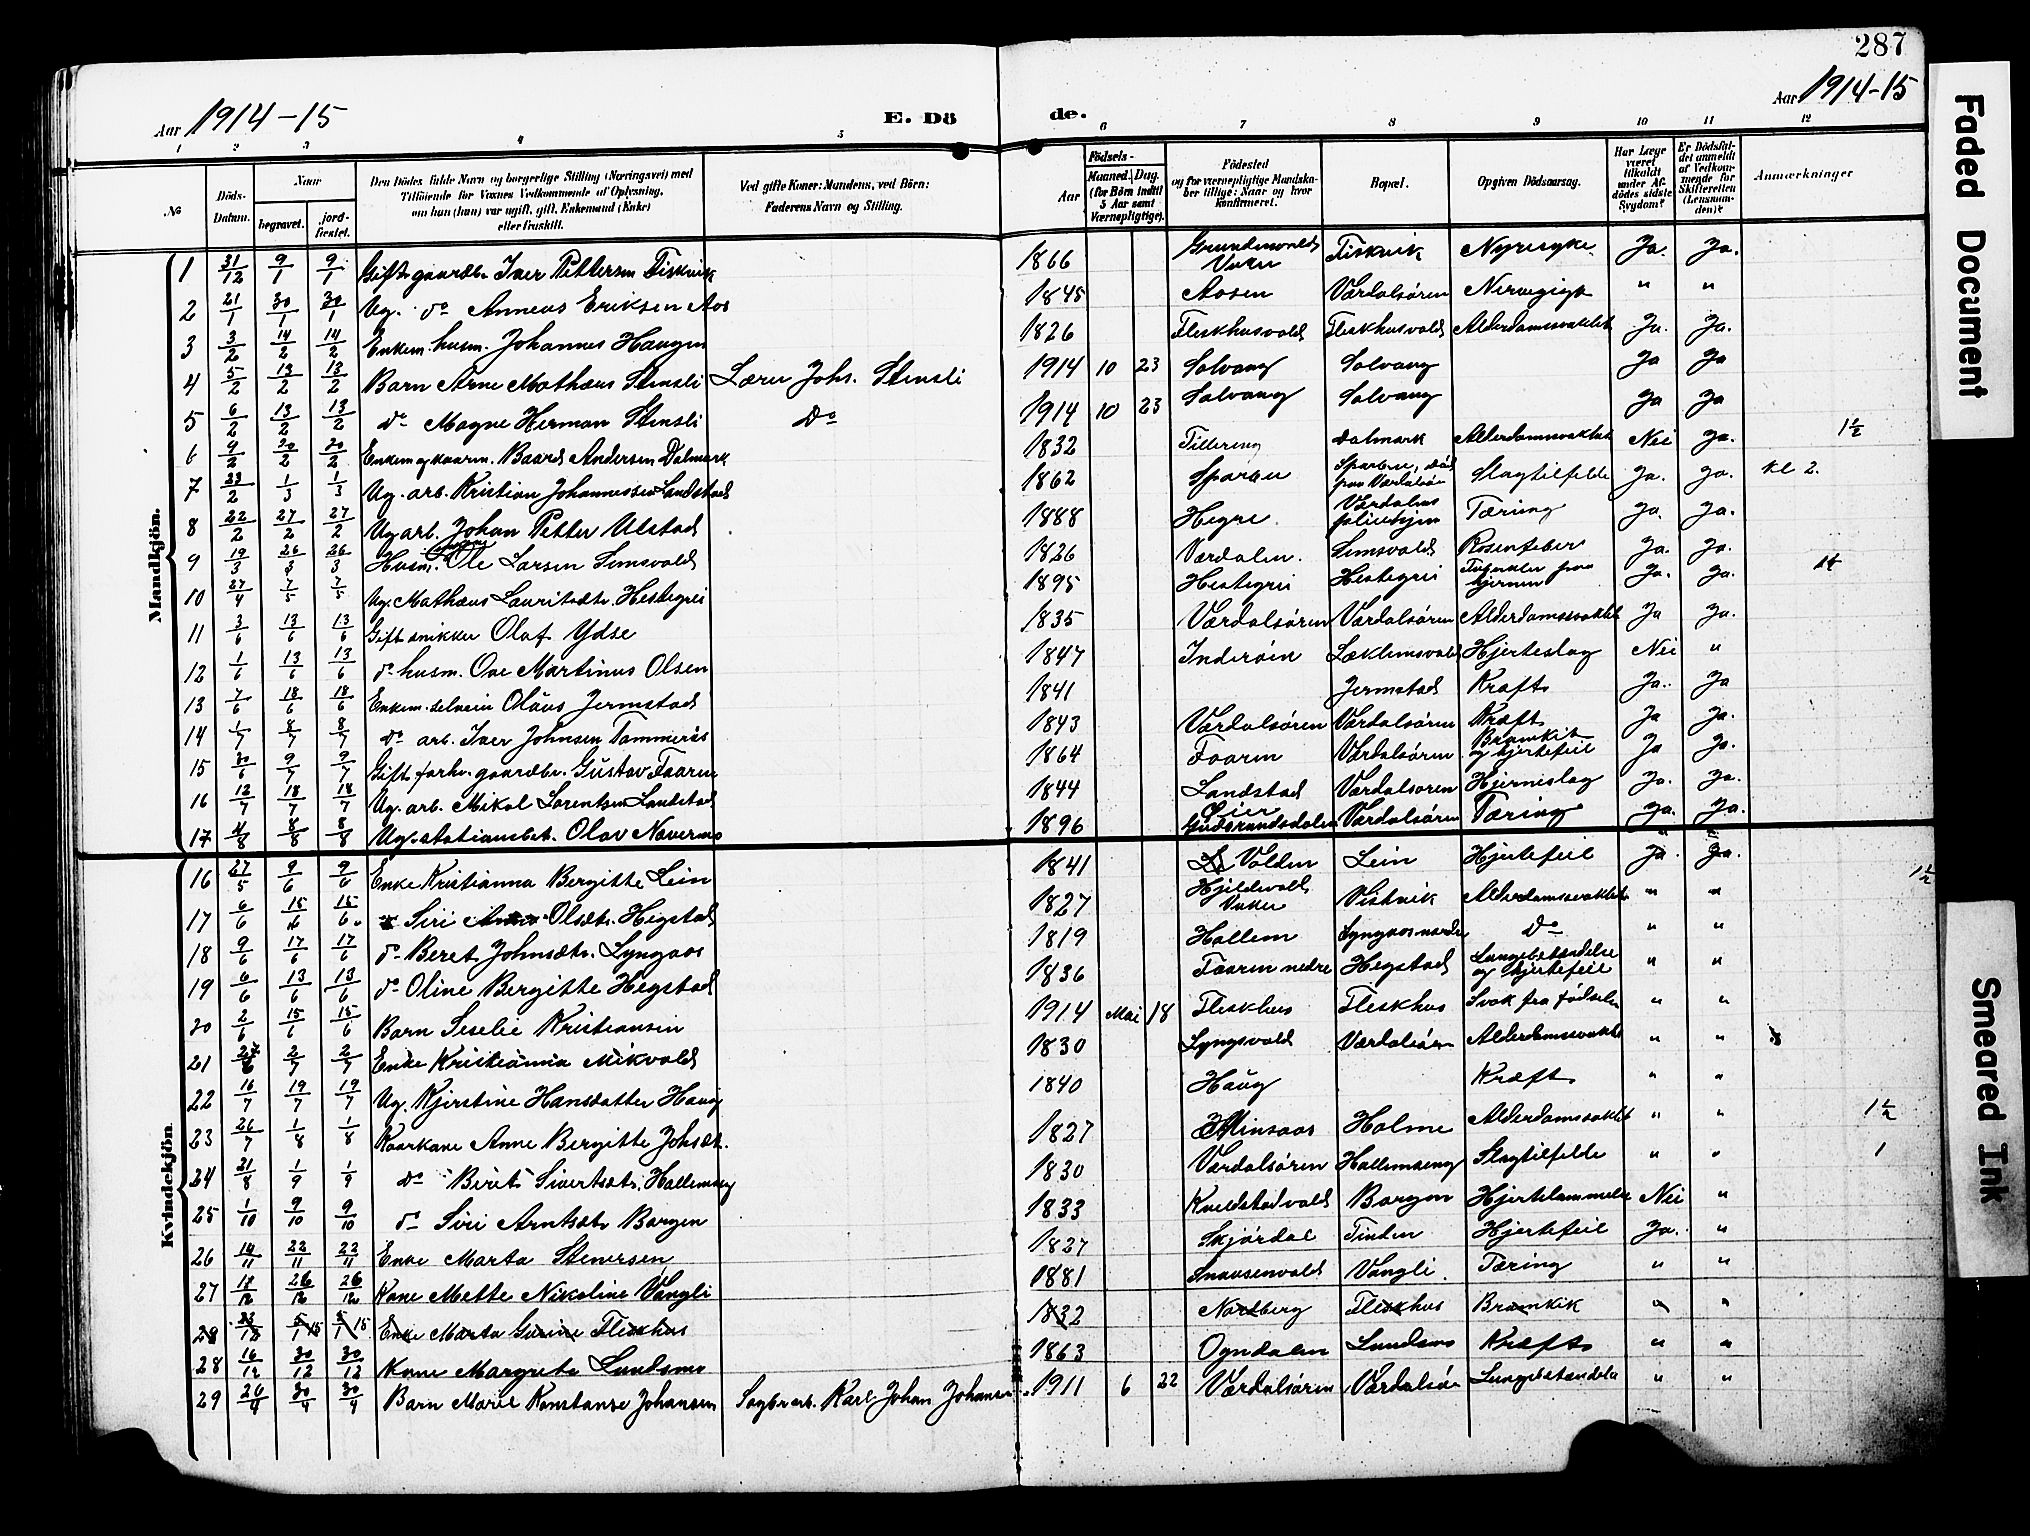 287
Aar 1914-15
E. Dö de.
Aar 1914-15
1 2 3 4 5 6 7 8 9 10 11 12
№
Döds-Datum.
Naar
begravet.
jord-fæstet.
Den Dödes fulde Navn og borgerlige Stilling (Næringsvei) med
Tilföiende for Voxnes Vedkommende af Oplysning,
om han (hun) var ugift, gift, Enkemand (Enke)
eller fraskilt.
Ved gifte Koner: Mandens, ved Börn:
Faderens Navn og Stilling.
Födsels-
Aar
Maaned. Dag.
(for Börn indtil
5 Aar samt
Værnepligtige).
Födested
og for værnepligtige Mandska-
ber tillige: Naar og hvor
konfirmeret.
Bopæl.
Opgiven Dödsaarsag.
Har Læge
været
tilkaldt
under Af-
dödes sidste
Sygdom?
Er Dödsfal-
det anmeldt
af Vedkom-
mende for
Skifteretten
(Lensman-
den)?
Anmærkninger
Mandkjön.
1 31/12 9/1 9/1 Gift gaardbr. Iver Pettersen Fiskvik 1866 Vuku Fiskvik Nyresyke Ja. Ja.
2 21/1 30/1 30/1 Ug. do Anneus Eriksen Aas 1845 Aasen Værdalsören " "
3 3/2 14/2 14/2 Enkem. husm. Johannes Haugen 1826 Fleskhusvald Fleskhusvald Alderdomssvakhet Ja. Ja.
4 5/2 13/2 13/2 Barn Arne Mathæus Stensli Lærer Johs. Stensli 1914 10 23 Solvang Solvang Ja Ja
5 6/2 13/2 13/2 do Magne Herman Stensli Do 1914 10 23 Solvang Solvang Ja Ja
6 9/2 20/2 20/2 Enkem og kaarm. Baard Andersen Dalmark 1832 Tillering Dalmark Alderdomssvakhet Nei Ja. 1½
7 23/2 1/3 1/3 Ug. arb. Kristian Johannessen Landstad 1862 Sparbu Sparbu, död paa Værdalsören Slagtilfelde Ja. Ja. kl 2.
8 22/2 27/2 27/2 Ug arb. Johan Petter Ulstad 1888 Hegre. Værdalens pleiehjem Tæring Ja. Ja.
9 19/3 26/3 26/3 Husm. Ole Larsen Semsvald 1826 Værdalen. Semsvald Rosenfeber Ja. Ja.
10 27/4 7/5 7/5 Ug. Mathæus Lauritsøtr. Hestegrei 1895 Hestegrei Hestegrei Tuberkler paa hjernen Ja. Ja.
11 3/6 13/6 13/6 Gift snikker Olaf Ydse 1835 Værdalsören Værdalsören Alderdomssvakhet Ja Ja.
12 1/6 13/6 13/6 do husm. Ove Martinus Olsen 1847 Inderöen Læklemsvald Hjerteslag Nei "
13 7/6 18/6 18/6 Enkem. Olaus Jermstad 1841 Jermstad Kræft Ja. Ja
14 1/7 8/7 8/7 do arb. Iver Johnsen Tømmerås 1843 Værdalsören Værdalsören Kræft Ja Ja.
15 30/6 9/7 9/7 Gift forhv. gaardbr. Gustav Faaren 1864 Faaren Værdalsören Bronkit og hjertefeil Ja Ja.
16 12/7 18/7 18/7 Ug. arb. Mikal Lorentsen Landstad 1844 Landstad Værdalsören Hjerneslag Ja. Ja.
17 4/8 8/8 8/8 Ug. stationsbet. Olav Navermo 1896 Gudbrandsdalen Værdalsören Tæring Ja. Ja.
Kvindekjön.
16 27/5 9/6 9/6 Enke Kristianna Bergitte Lein 1841 Volden Lein Hjertefeil Ja. Ja. 1½
17 6/6 15/6 15/6 Siri Olsdtr. Hegstad 1827 Hjeldevald Vuku Vistvik Alderdomssvakhet " "
18 9/6 17/6 17/6 do Beret Johnsdtr. Lyngaas 1819 Hallem Lyngaas nordre Do " "
19 6/6 13/6 13/6 do Oline Bergitte Hegstad 1836 Faaren nedre Hegstad Lungebetændelse og hjertefeil " "
20 2/6 15/6 15/6 Barn Seselie Kristiansen 1914 Mai 18 Fleskhus Fleskhus Svak fra födselen " "
21 27/6 2/7 2/7 Enke Kristianna Mikvold 1830 Lyngsvald Værdalsören Alderdomssvakhet " "
22 16/7 19/7 19/7 Ug. Kjerstine Hansdatter Haug 1840 Haug Kræft " "
23 26/7 1/8 1/8 Kaarkone Anne Bergitte Johsdt. 1827 Minsaas Holme Alderdomssvakhet " " 1½
24 21/8 1/9 1/9 do Berit Sivertsdtr. Hallemseng 1830 Værdalsören Hallemseng Slagtilfelde " " 1
25 1/10 9/10 9/10 do Siri Arntsdtr Borgen 1833 Kveldstadvald Borgen Hjertelammelse Nei "
26 14/11 22/11 22/11 Enke Marta Stenersen 1827 Skjördal Tinden Hjertefeil Ja. "
27 18/12 26/12 26/12 Kone Mette Nikoline Vangli 1881 Snausenvald Vangli. Tæring " "
28 23/12 5/1 15 5/1 15 Enke Marta Gurine Fleskhus 1832 Nordberg Fleskhus Bronkik " "
28 16/12 30/12 30/12 Kone Margrete Lundsmo 1863 Ogndalen Lundsmo Kræft " "
29 26/4 30/4 30/4 Barn Marie Konstanse Johansen Sagbr arb. Karl Johan Johansen 1911 6 22 Værdalsören Værdalsören Lungebetændelse " "
Faded Document
Smeared Ink